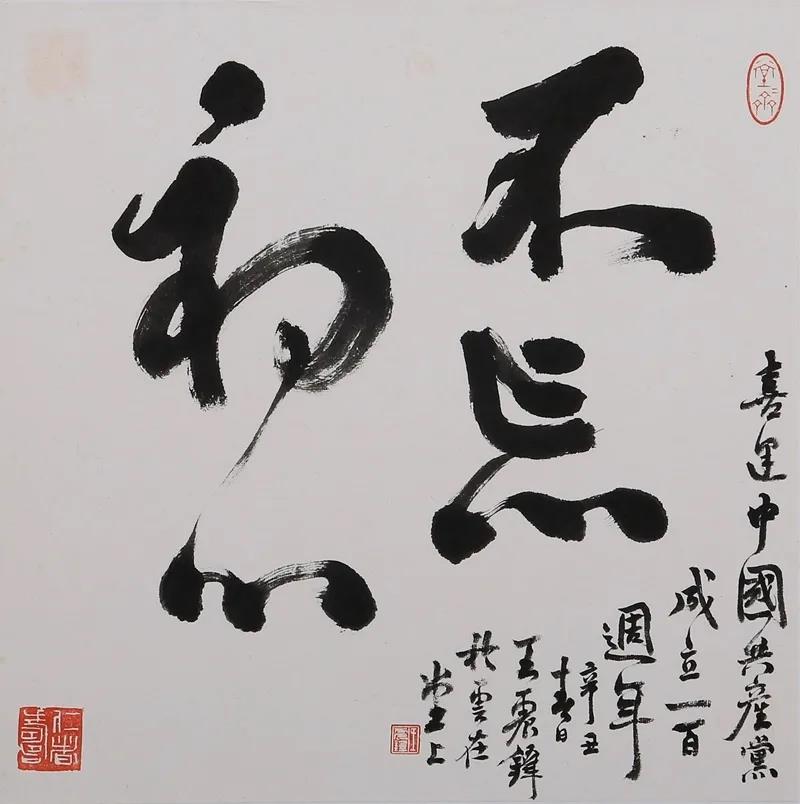 不忘
初心
喜中國共產黨
成立一百
週年
辛丑
春日
王鋒
於雲在
堂上
仁者壽